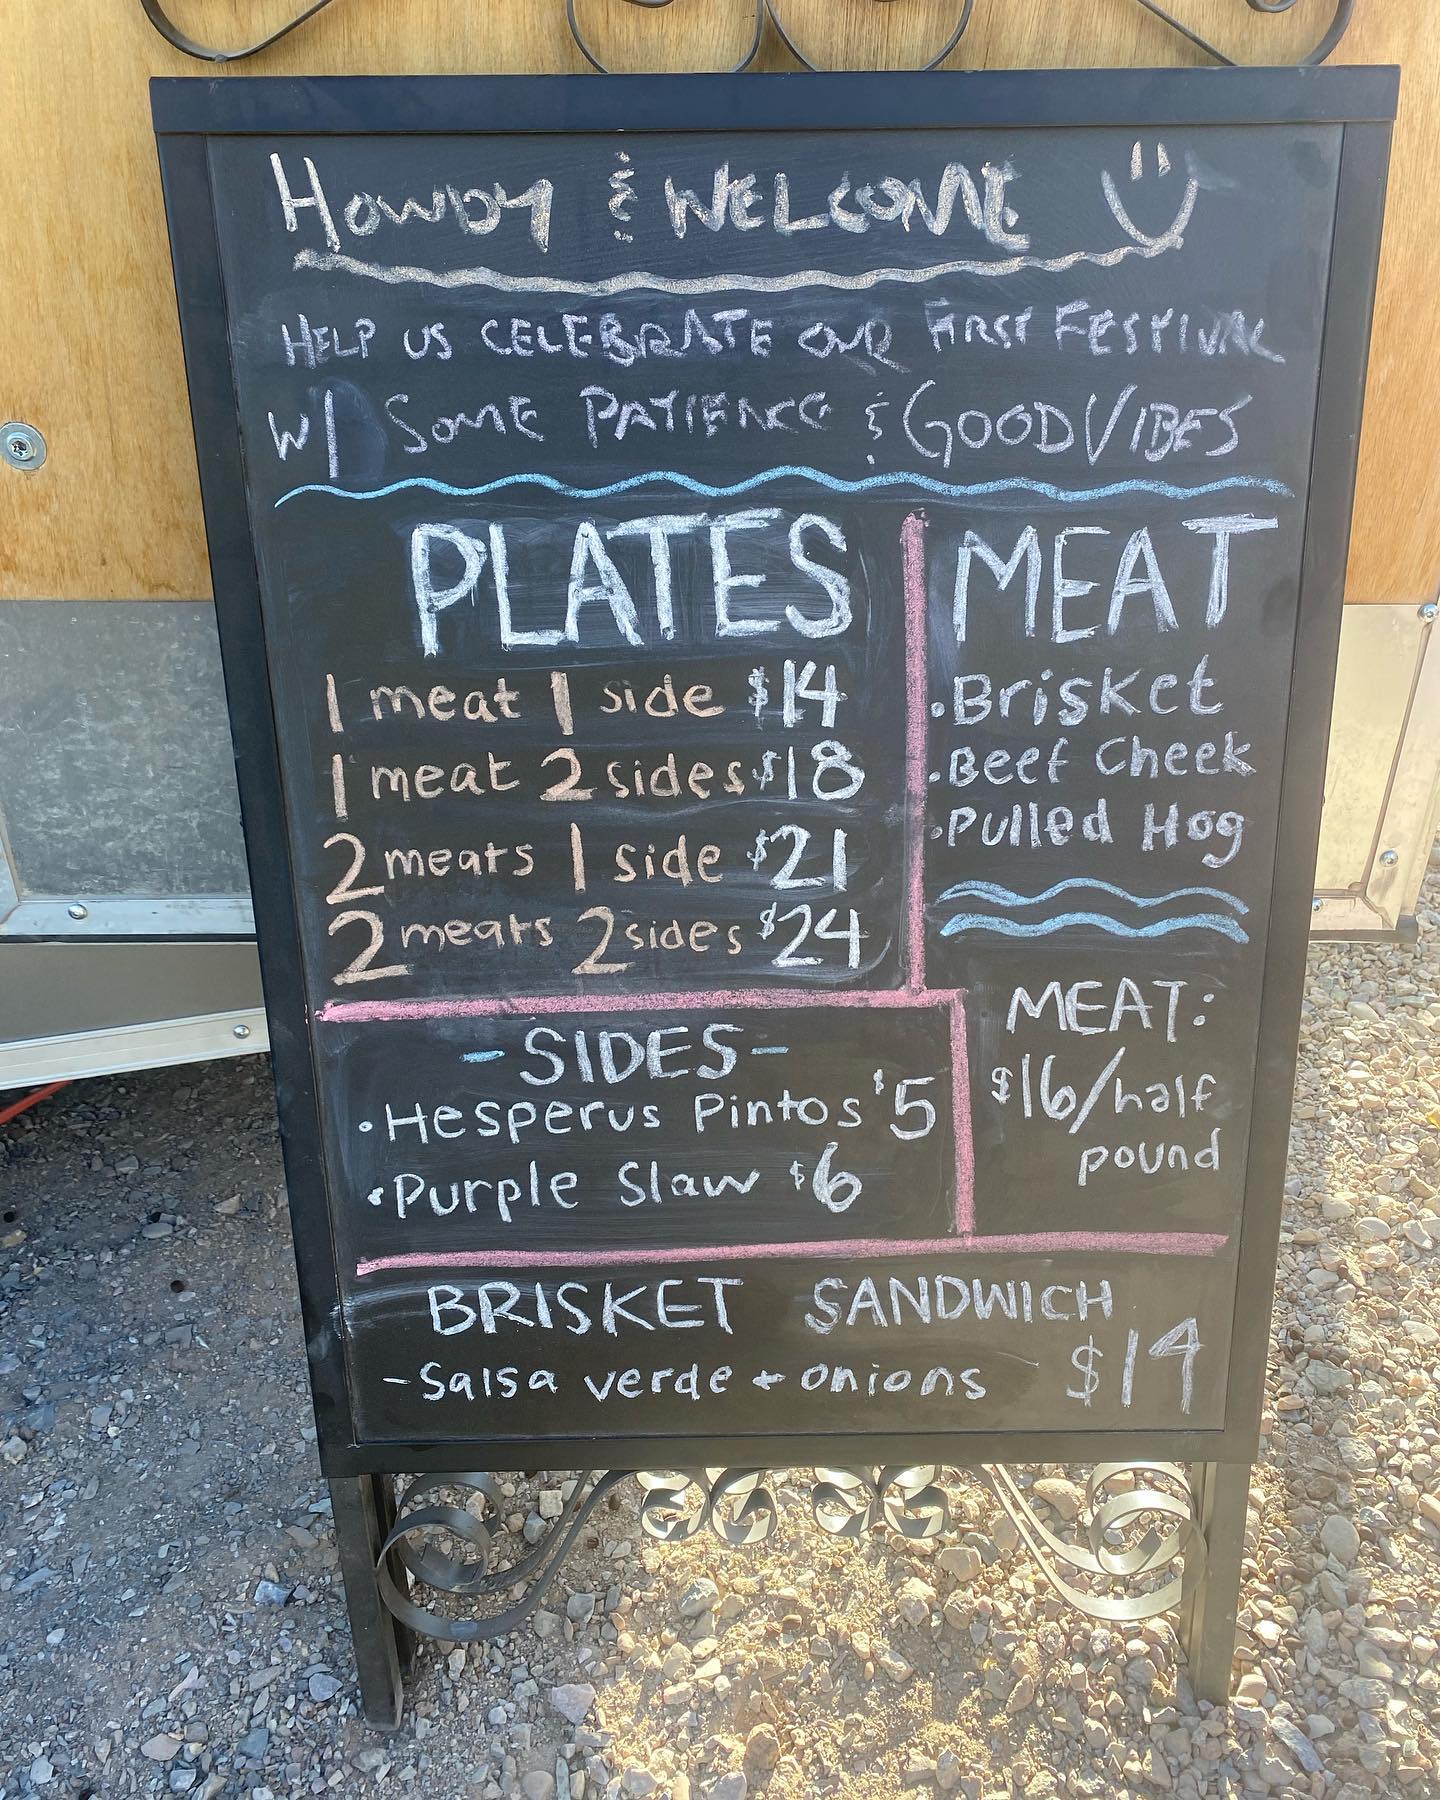 HOWDY & WELCOME
HELP US CELEBRATE OUR FIRST FESTIVAL
W/ SOME PATIENCE & GOOD VIBES
PLATES
1 meat 1 side $14
1 meat 2 sides $18
2 meats 1 side $21
2 meats 2 sides $24
MEAT
• Brisket
• Beef Cheek
• Pulled Hog
MEAT:
$16/half
pound
- SIDES -
• Hesperus Pintos $5
• Purple Slaw $6
BRISKET SANDWICH
- Salsa verde + onions $14